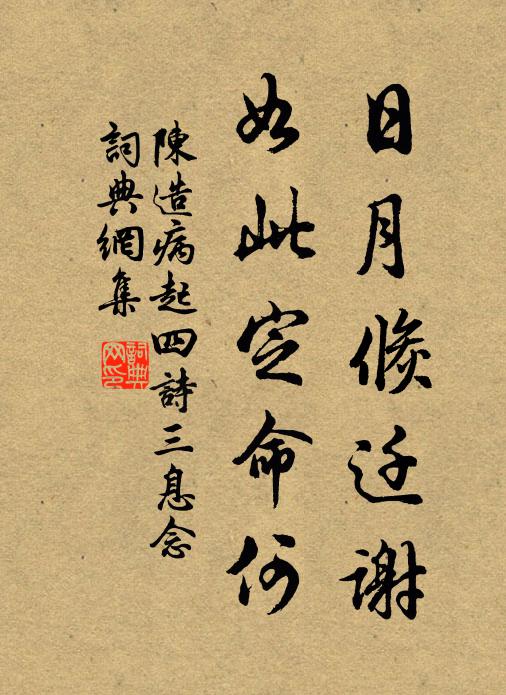 日月倏迁謝
如此定命何
陳造病起四詩三息念
詞典網集
詞典网印